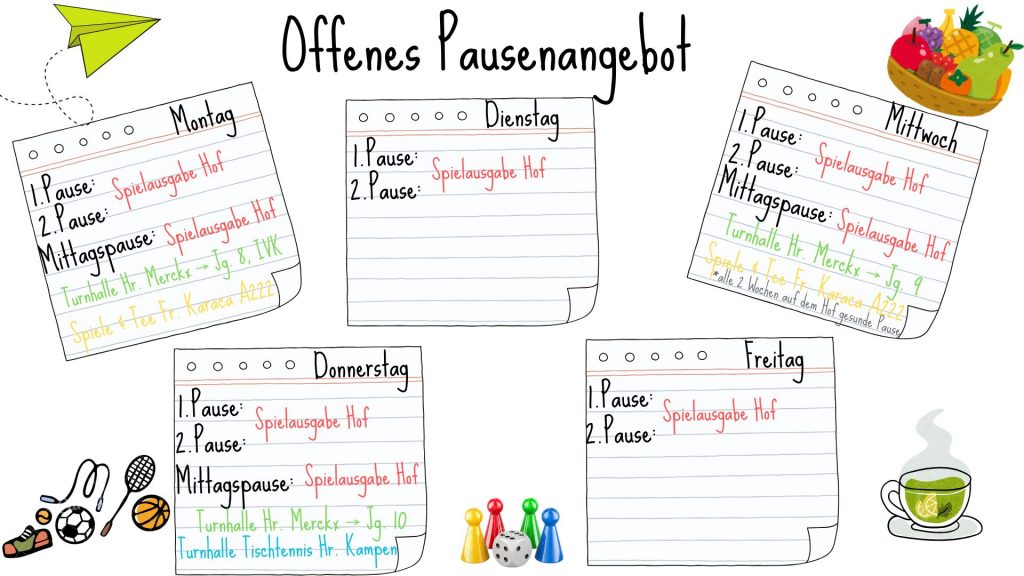 Offenes Pausenangebot
Montag
1.Pause:
Spielausgabe Hof
2.Pause:
Mittagspause: Spielausgabe Hof
Turnhalle Hr. Merckx → Jg. 8, IVK
Spiele & Tee Fr. Karaca A222
Dienstag
1.Pause:
Spielausgabe Hof
2.Pause:
Mittwoch
1.Pause:
Spielausgabe Hof
2.Pause:
Mittagspause: Spielausgabe Hof
Turnhalle Hr. Merckx → Jg. 9
Spiele & Tee Fr. Karaca A222
*alle 2 Wochen auf dem Hof gesunde Pause
Donnerstag
1.Pause:
Spielausgabe Hof
2.Pause:
Mittagspause: Spielausgabe Hof
Turnhalle Hr. Merckx → Jg. 10
Turnhalle Tischtennis Hr. Kampen
Freitag
1.Pause:
Spielausgabe Hof
2.Pause: